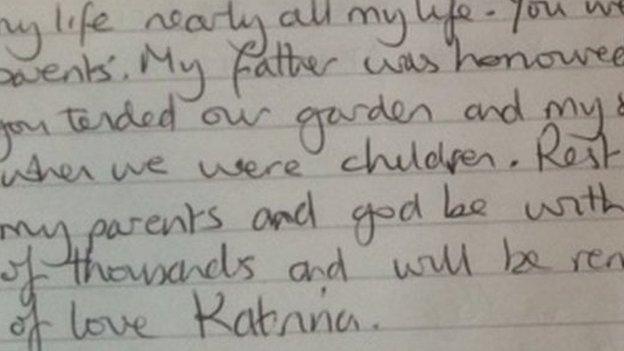 my life nearly all my life. You we
parents. My father was honoured
you tended our garden and my
when we were children. Rest
my parents and god be with
of thousands and will be rem
of love Katrina.